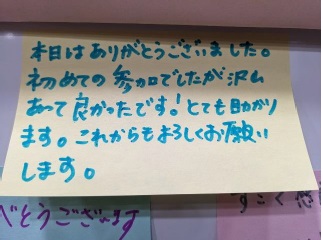 本日はありがとうございました。
初めての参加でしたが沢山
あって良かったです！とても助かり
ます。これからもよろしくお願い
します。
とうございます
すごく